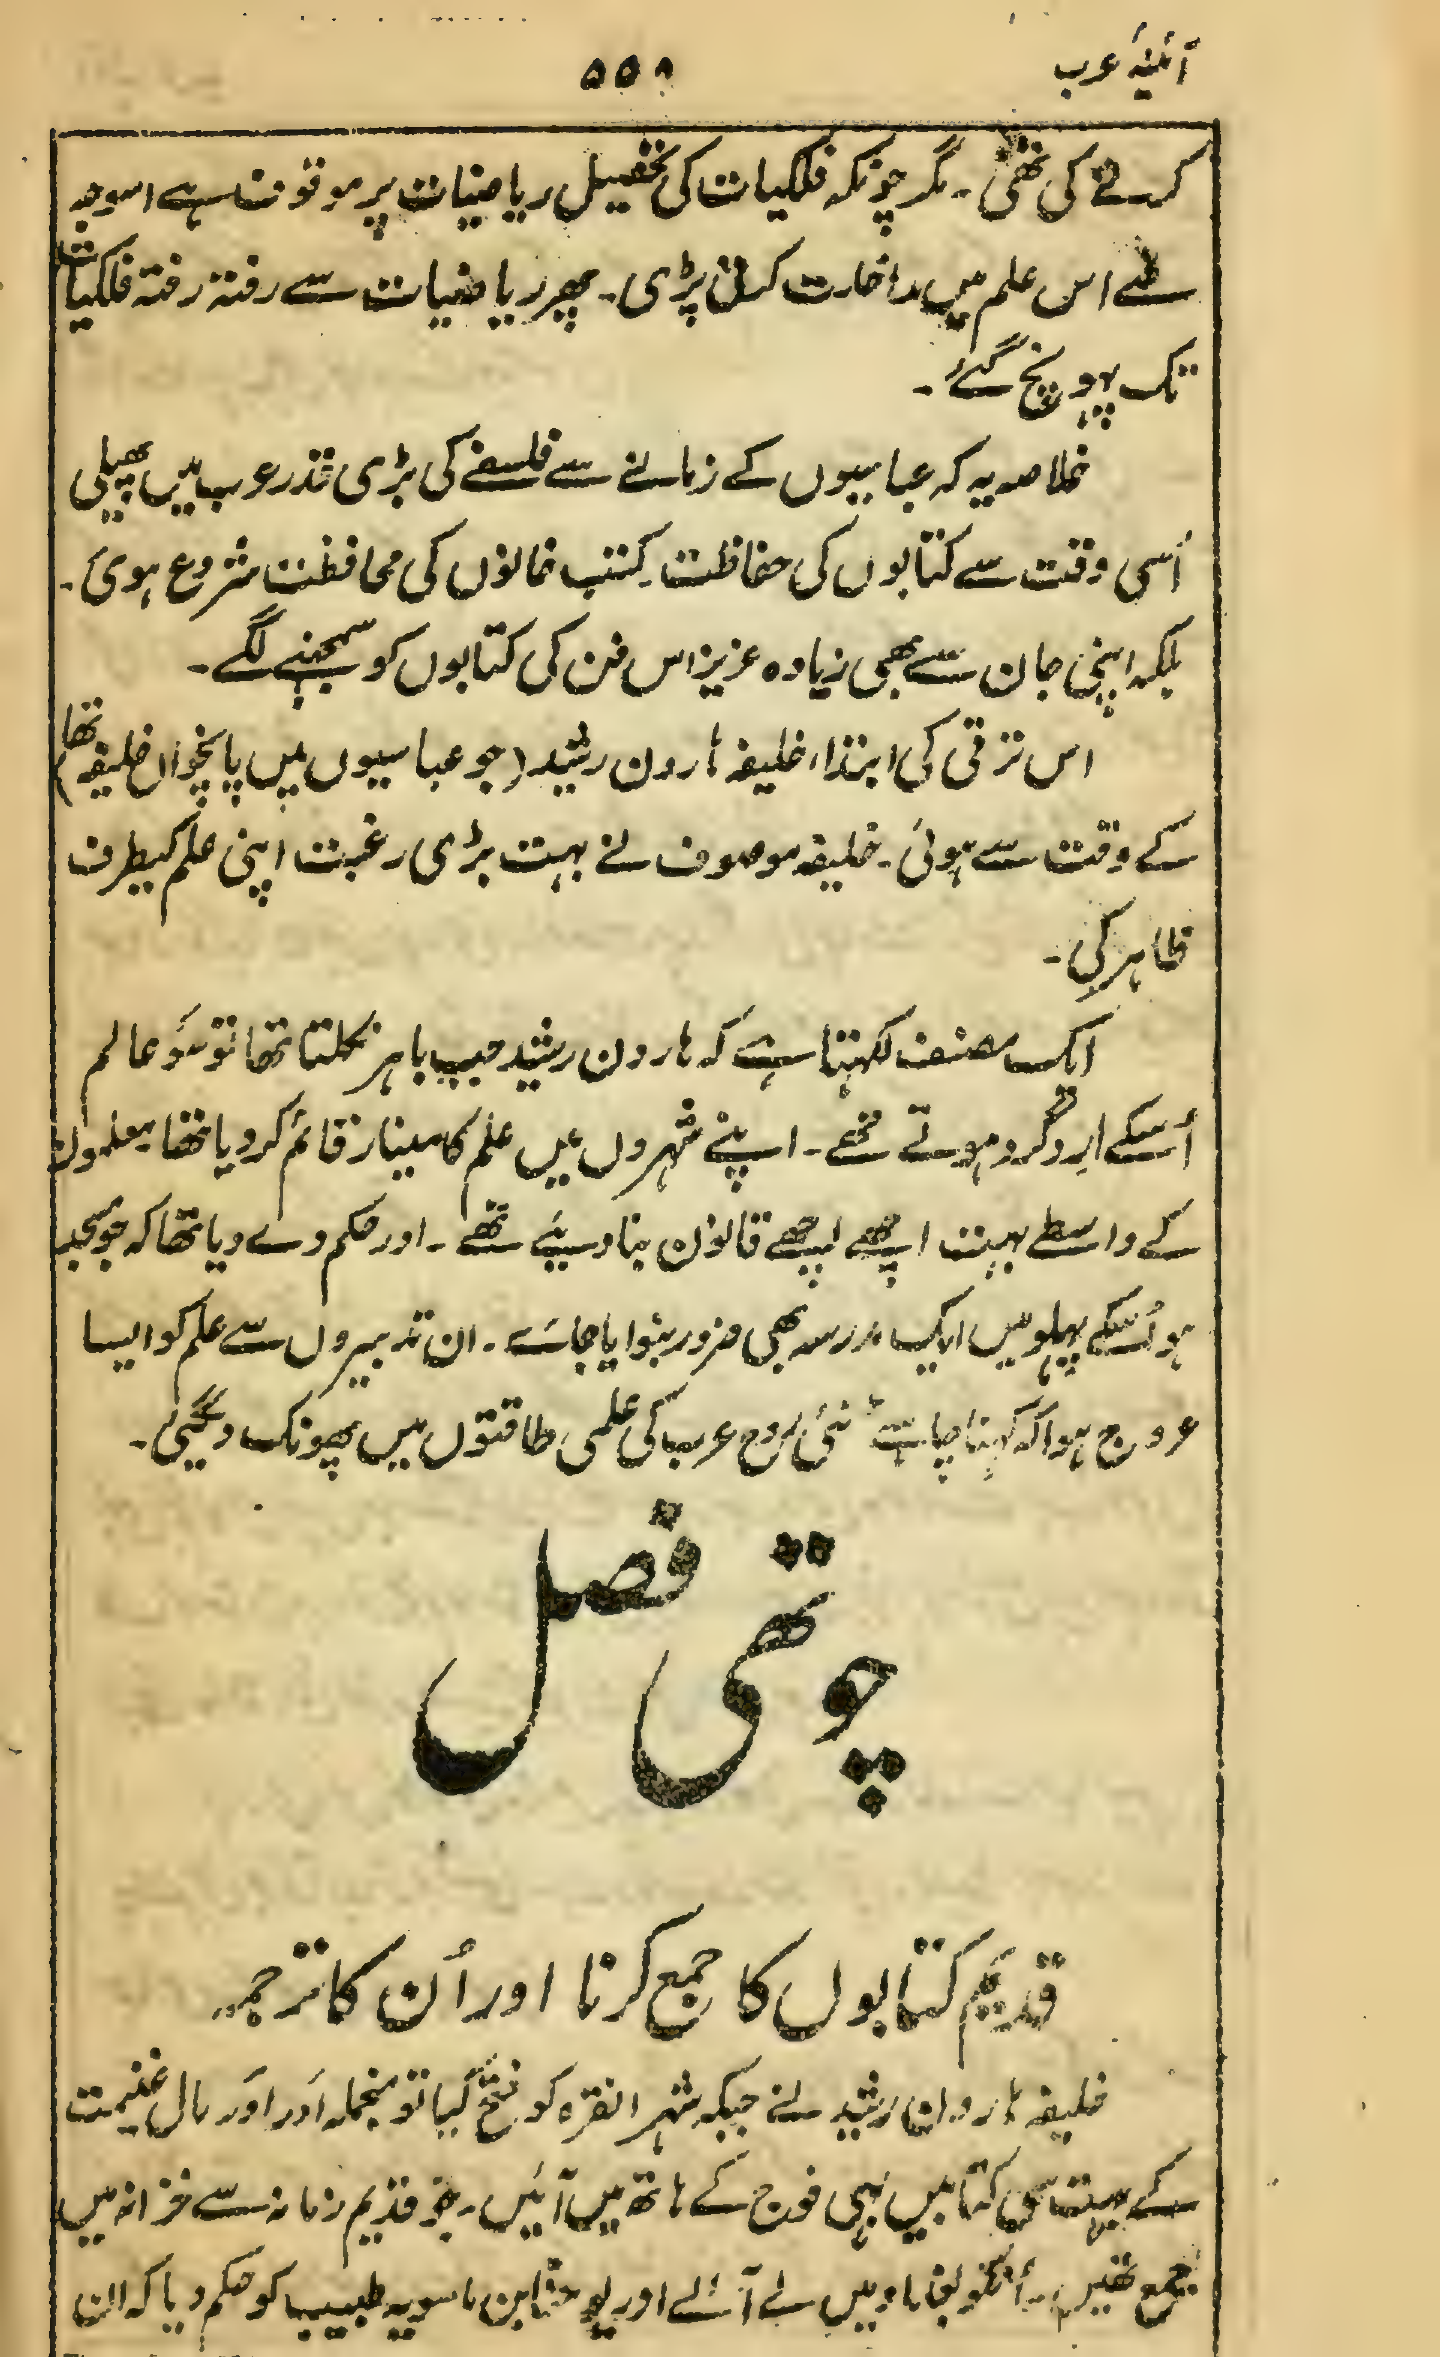 آئینۂ عرب
۵۵۸
کرنے کی تھی ۔ مگر چونکہ فلکیات کی تحصیل ریاضیات پر موقوف ہے اسوجہ
سے اس علم میں مداخلت کرنی پڑی ۔ پھر ریاضیات سے رفتہ رفتہ فلکیات
تک پہونچ گئے ۔
خلاصہ یہ کہ عباسیوں کے زمانے سے فلسفے کی بڑی قدر عرب میں پھیلی
اُسی وقت سے کتابوں کی حفاظت ۔ کتب خانوں کی محافظت شروع ہوئی ۔
بلکہ اپنی جان سے بھی زیادہ عزیز اس فن کی کتابوں کو سمجھنے لگے ۔
اس ترقی کی ابتداء خلیفہ ہارون رشید (جو عباسیوں میں پانچواں خلیفہ تھا)
کے وقت سے ہوئی ۔ خلیفہ موصوف نے بہت بڑی رغبت اپنی علم کیطرف
ظاہر کی ۔
ایک مصنف لکھتا ہے کہ ہارون رشید جب باہر نکلتا تھا تو سَو عالم
اُسکے اردگرد ہوتے تھے ۔ اپنے شہروں میں علم کا مینار قائم کر دیا تھا ۔
کے واسطے بہت اچھے اچھے قانون بنا دیئے تھے ۔ اور حکم دے دیا تھا کہ جو مسجد
ہو اُسکے پہلو میں ایک مدرسہ بھی ضرور بنوایا جائے ۔ ان تدبیروں سے علم کو ایسا
عروج ہوا کہ کہنا چاہئے نئی روح عرب کی علمی طاقتوں میں پھونک دیگئی ۔
چوتھی فصل
قدیم کتابوں کا جمع کرنا اور اُن کا ترجمہ
خلیفہ ہارون رشید نے جبکہ شہر انقرہ کو فتح کیا تو منجملہ اَور اَور مال غنیمت
کے بہت سی کتابیں بھی فوج کے ہاتھ میں آئیں ۔ جو قدیم زمانہ سے خزانہ میں
جمع تھیں ۔ اُنکو بغداد میں لے آئے اور یوحنا ابن ماسویہ طبیب کو حکم دیا کہ ان